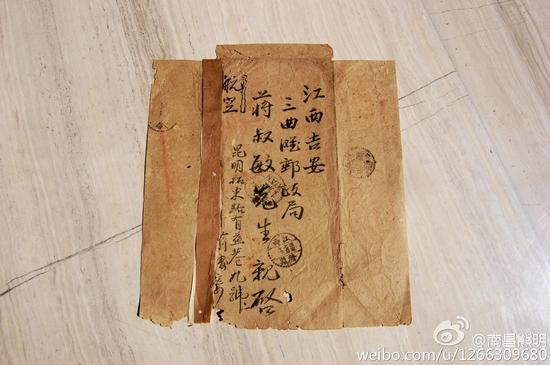 江西吉安
三曲滩郵政局
蒋叔敏先生親啓
航空
昆明拓東路有益巷九號
@南昌熊明
weibo.com/u/1266309680